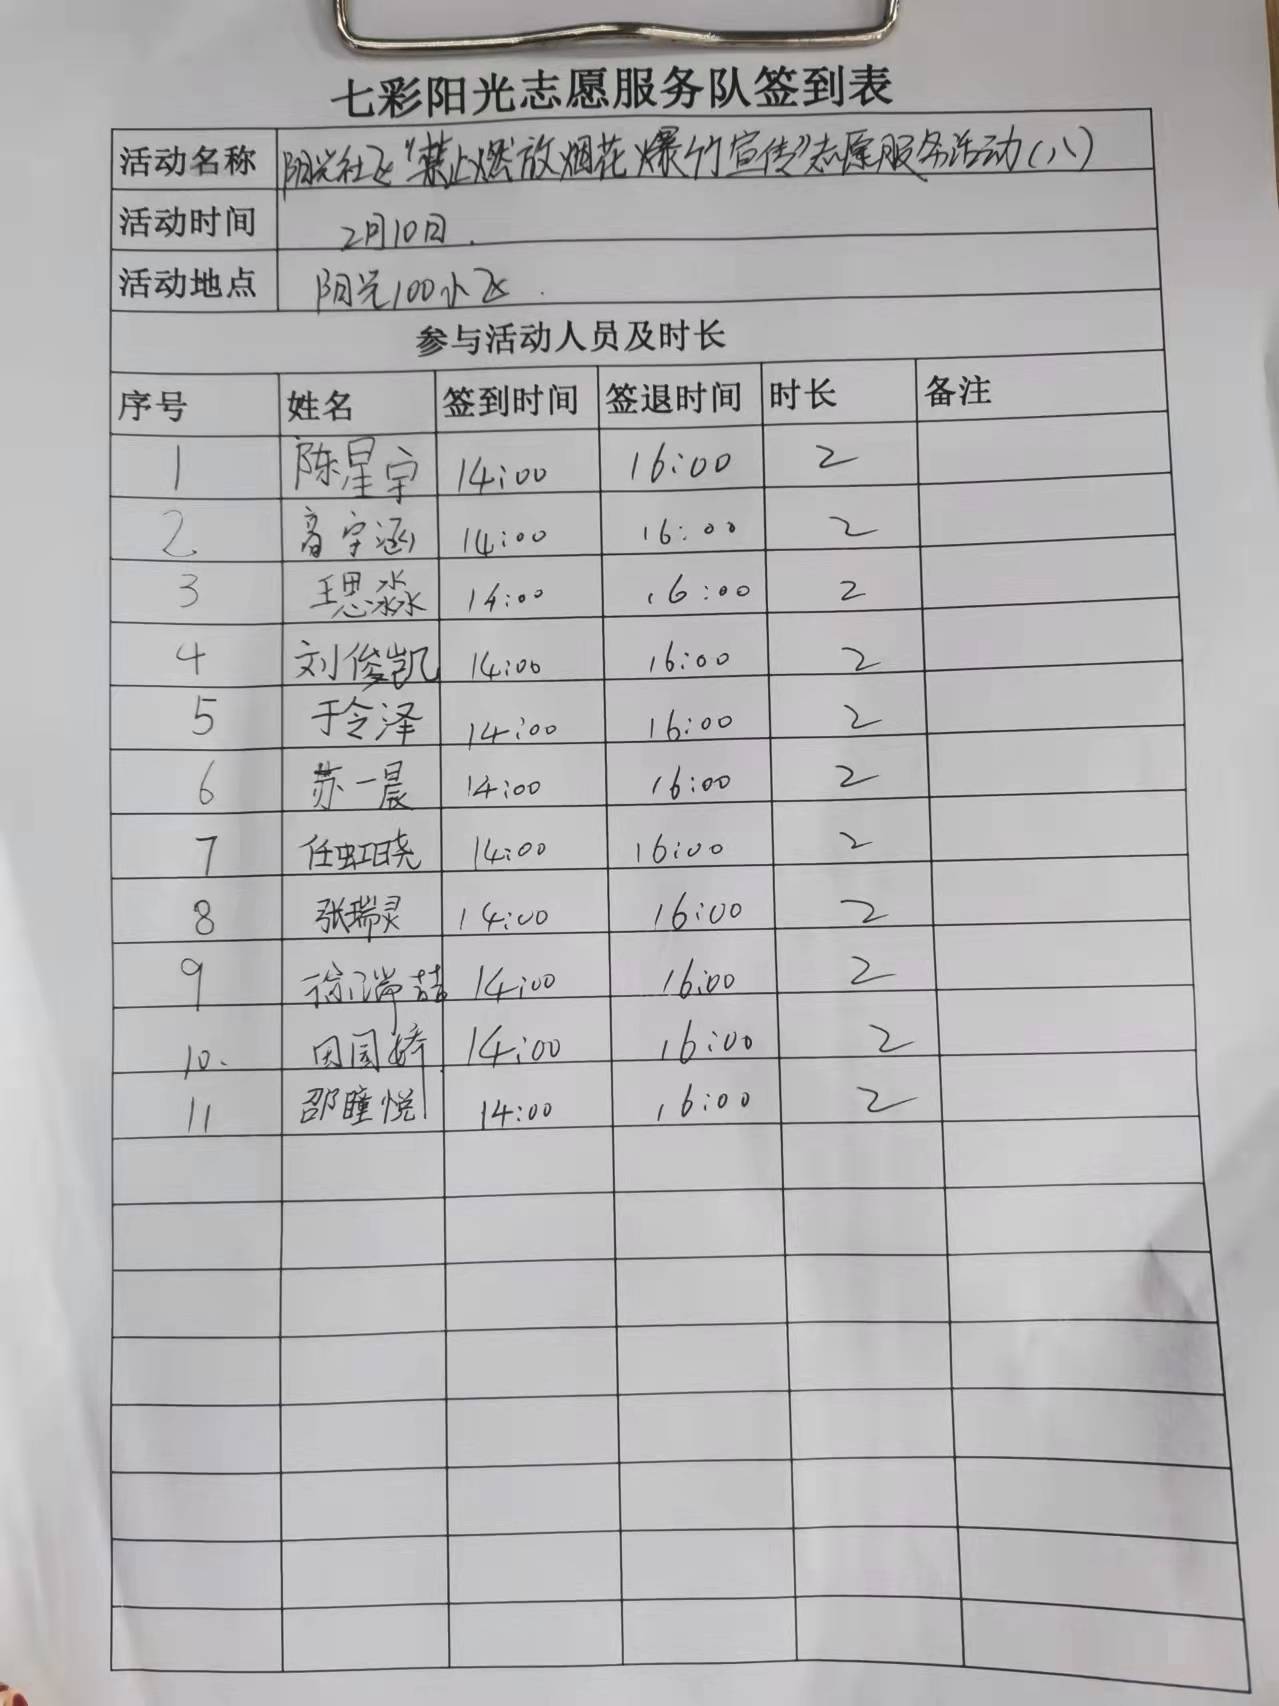 七彩阳光志愿服务队签到表
活动名称 阳光社区“禁止燃放烟花爆竹宣传”志愿服务活动(八)
活动时间 2月10日.
活动地点 阳光100小区.
参与活动人员及时长
序号 姓名 签到时间 签退时间 时长 备注
1 陈星宇 14:00 16:00 2
2 高宇涵 14:00 16:00 2
3 王思淼 14:00 16:00 2
4 刘俊凯 14:00 16:00 2
5 于令泽 14:00 16:00 2
6 苏一晨 14:00 16:00 2
7 任虹晓 14:00 16:00 2
8 张瑞灵 14:00 16:00 2
9 14:00 16:00 2
10. 14:00 16:00 2
11 邵瞳悦 14:00 16:00 2